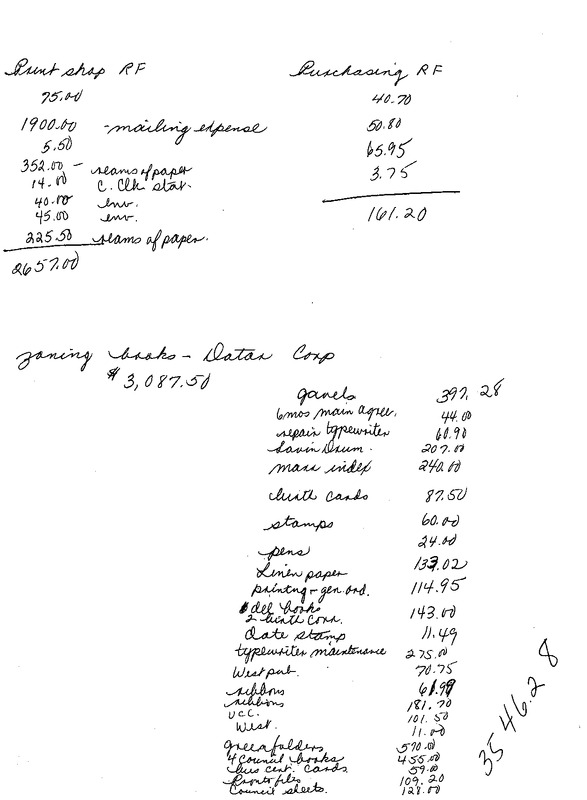 Print shop RF
75.00
1900.00 - mailing expense
5.50
352.00 - reams of paper
14.00 C. Clk stat.
40.00 env.
45.00 env.
225.50 reams of paper.
2657.00
Purchasing RF
40.70
50.80
65.95
3.75
161.20
zoning books - Datar Corp
$3,087.50
gavels 397.28
6mos main agree. 44.00
repair typewriter 60.90
Savin Drum. 207.00
mass index 240.00
birth cards 87.50
stamps 60.00
pens 24.00
Linen paper 133.02
printng - gen ord. 114.95
del books
2 birth Corr. 143.00
Date stamp 11.49
typewriter maintenance 275.00
West pub. 70.75
ribbons 61.99
ribbons 181.70
UCC. 101.50
West. 11.00
green folders 570.00
4 Council books 455.00
bus cert. cards 59.00
Pronto files 109.20
Council sheets. 128.00
3546.28